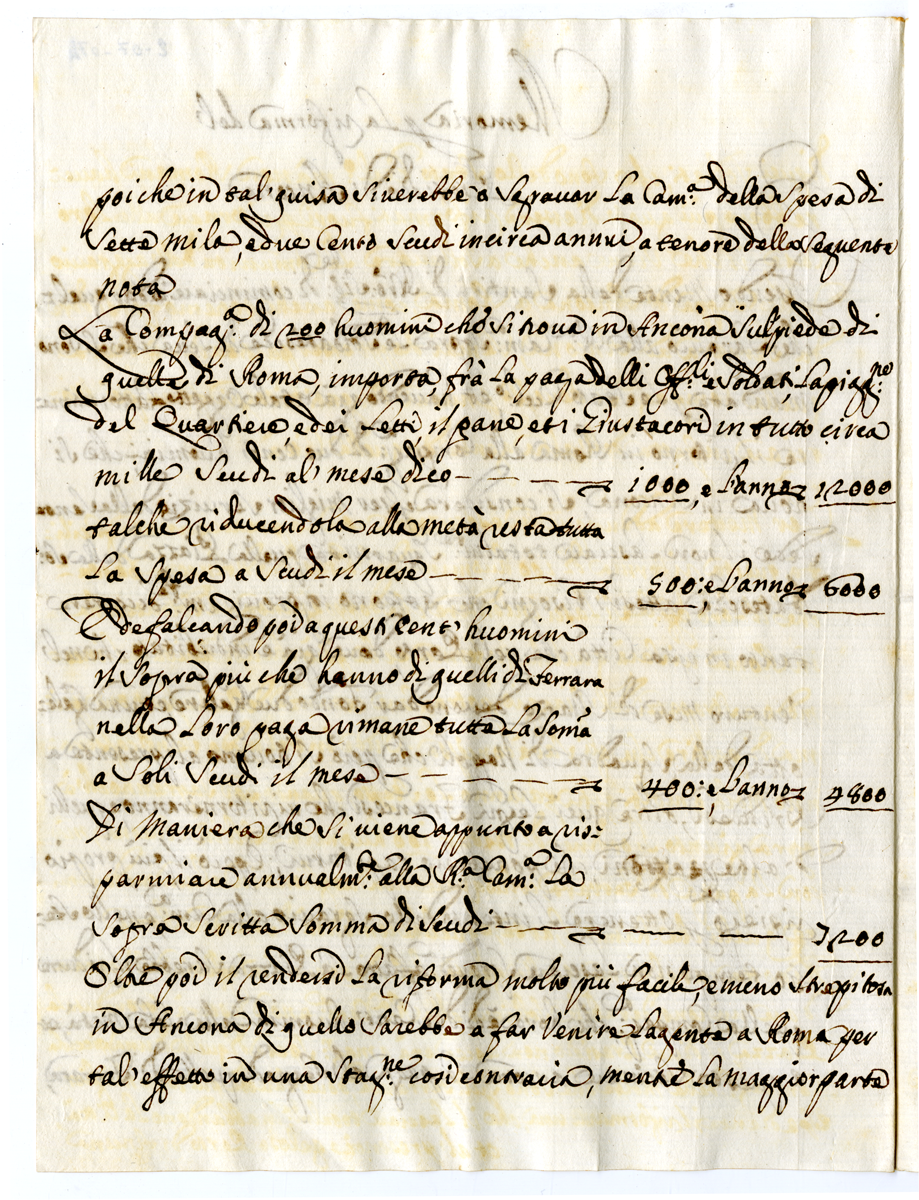 poiche in tal' guisa si verebbe à sgravar la Cam.ª della spesa di
sette mila, e due cento scudi in circa annui, a tenore della seguente
nota
La Compag.ª di 200 huomini che si trova in Ancona sul piede di
quella di Roma, importa, frà la paga delli Off.li e Soldati, la pigg.ne
del Quartiere, e dei Letti, il pane, et i Giustacori in tutto circa
mille scudi al' mese dico - - - - 1000, e l'anno 12000
talche riducendola alla metà resta tutta
la spesa a scudi il mese - - - - 500: e l'anno 6000
E defalcando poi a questi cent' huomini
il sopra più che hanno di quelli di Ferrara
nella loro paga rimane tutta la soma
a soli scudi il mese - - - - 400: e l'anno 4800
Di maniera che si viene appunto a ris:
parmiare annualm.te alla R.ª Cam.ª la
sopra scritta somma di scudi - - - - 7200
Olte poi il rendersi la riforma molto più facile, e meno strepitosa
in Ancona di quello sarebbe a far venire la gente a Roma per
tal' effetto in una stag.ne così contraria, mentre la maggior parte